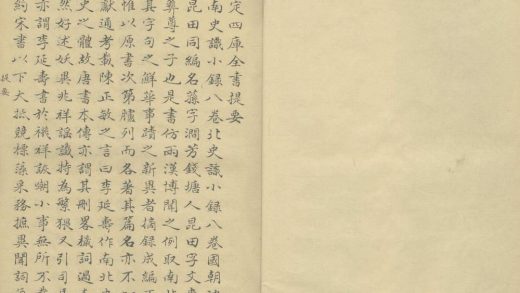 定四庫全書提要
南史識小錄八卷北史識小錄八卷國朝沈
昆田同編名蓀字澗芳錢塘人昆田字文
彝尊之子也是書仿兩漢博聞之例取南北
其字句之鮮華事蹟之新異者摘錄成編不
惟以原書次第臚列而各著其篇名亦不以
獻通考載陳正敏之言曰李延壽作南北
史之體故唐書本傳亦謂其刪畧穢詞過
然好述妖異兆祥謠讖特為繁猥又引司馬
亦謂李延壽書於禨祥詼嘲小事無所不
約宋書以下大抵競標藻采務摭異聞詞
提要